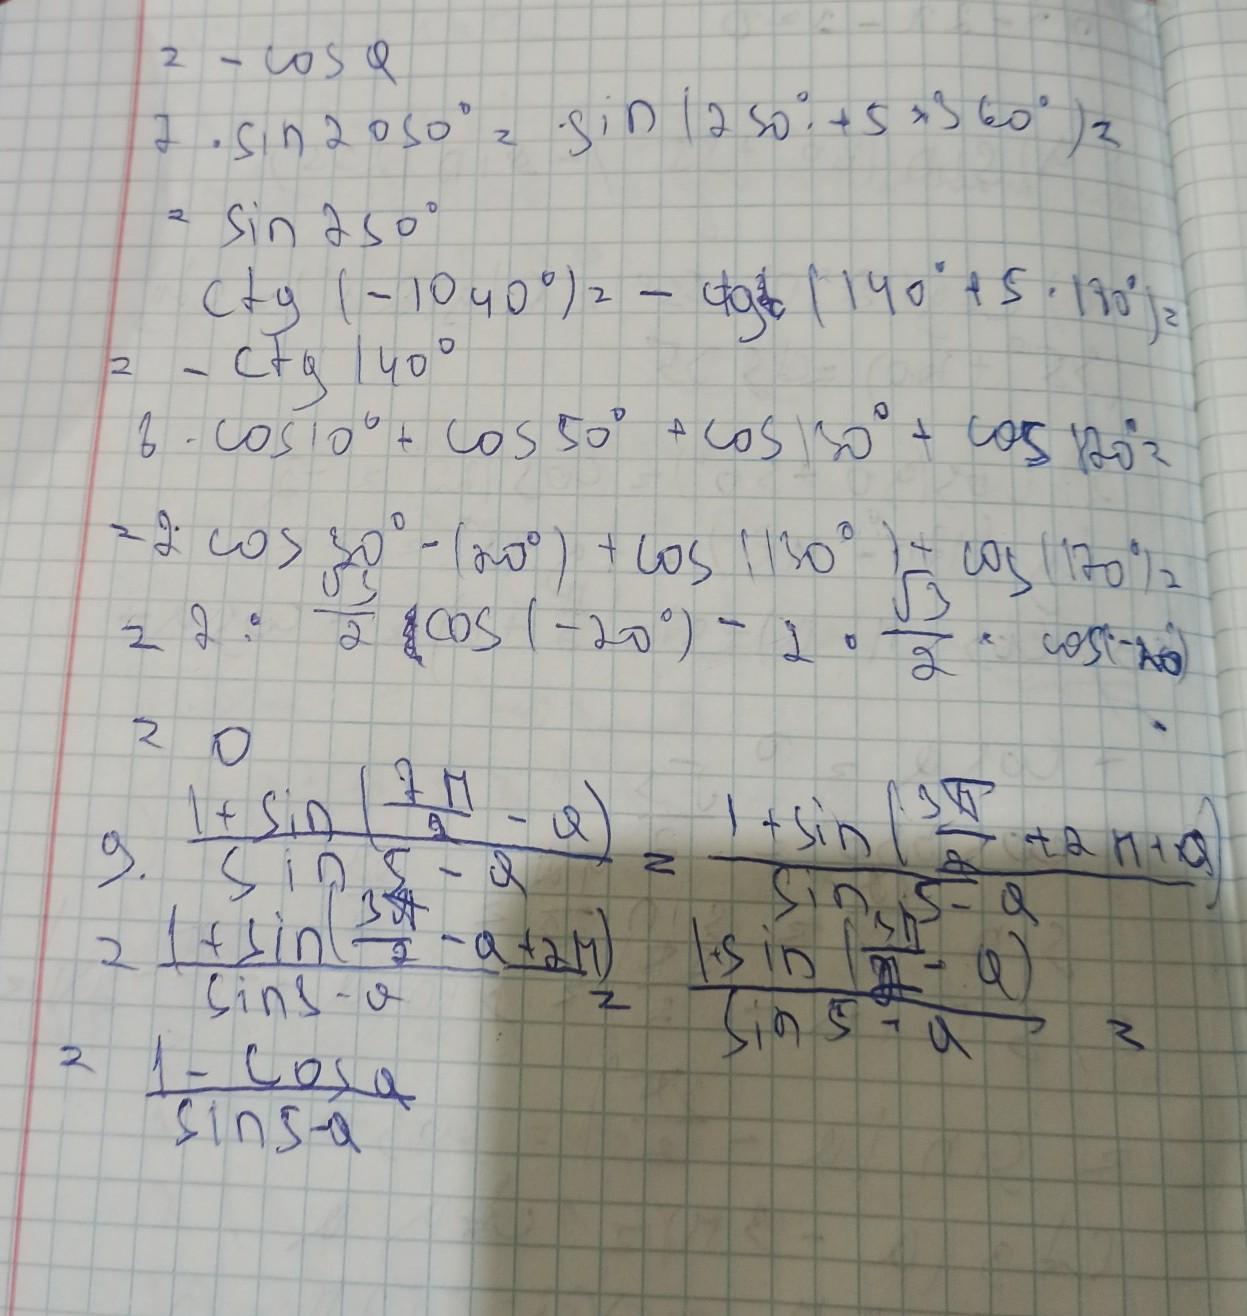 = - cos α
7. sin 2050° = sin (250° + 5 × 360°) =
= sin 250°
ctg (-1040°) = - ctg (140° + 5 · 180°) =
= - ctg 140°
8. cos 10° + cos 50° + cos 130° + cos 170° =
= 2 cos 30° - (20°) + cos (130°) + cos (170°) =
= 2 · √3/2 cos (-20°) - 2 · √3/2 · cos (-20)
= 0
9. (1 + sin (7π/2 - α)) / (sin 5 - α) = (1 + sin (3π/2 + 2π + α)) / (sin 5 - α)
= (1 + sin (3π/2 - α + 2π)) / (sin 5 - α) = (1 + sin (3π/2 - α)) / (sin 5 - α) =
= (1 - cos α) / (sin 5 - α)